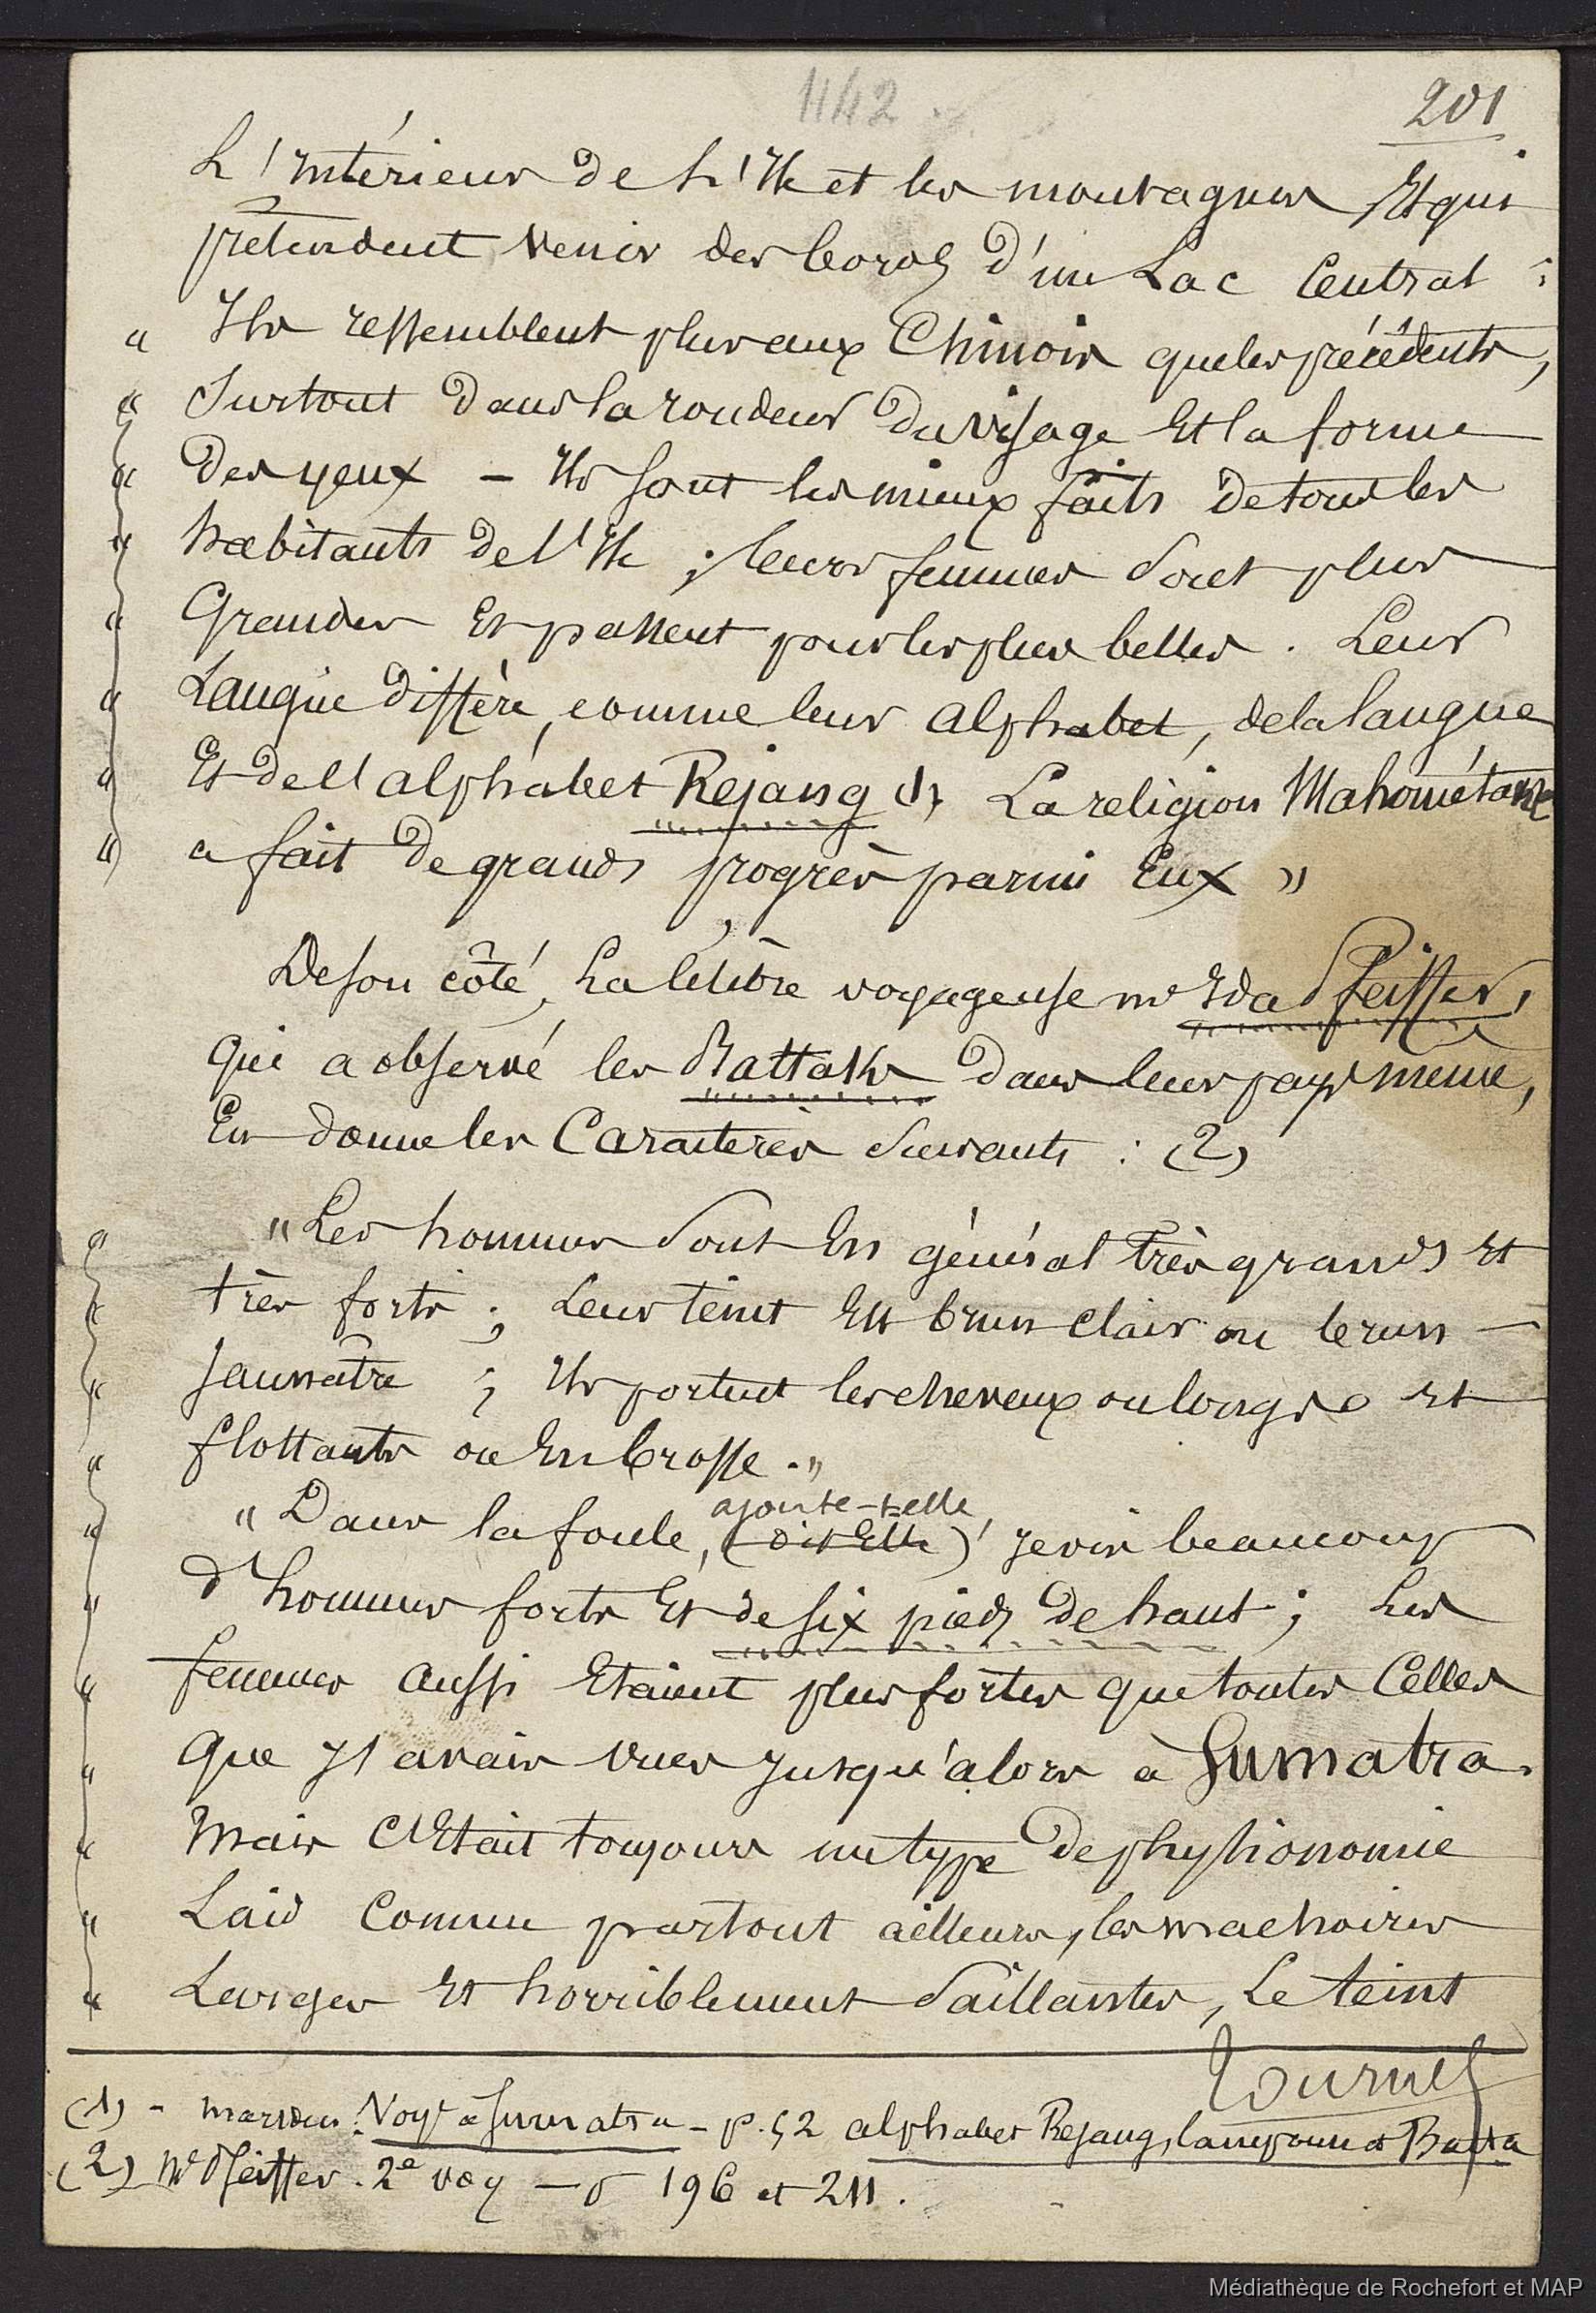 1142
201
L'intérieur de L'Ile et les montagnes Et qui
prétendent venir des bords d'un Lac Central :
" Ils ressemblent plus aux Chinois que les précédents,
" Surtout dans la rondeur du visage Et la forme
" Des yeux – Ils sont les mieux faits de tous les
" habitants de l'Ile ; leurs femmes sont plus
" Grandes Et passent pour les plus belles . Leur
" Langue diffère, comme leur alphabet, de la langue
" Et de l'alphabet Rejang (1) La religion Mahométane
" a fait de grands progrès parmi Eux "
De son côté, La célèbre voyageuse Me Ida Pfeiffer,
qui a observé les Battaks dans leur pays même,
En donne les Caractères Suivants : (2)
" Les hommes sont En général très grands Et
" très forts ; Leur teint Est brun clair ou brun –
" jaunâtre ; Ils portent les cheveux ou longs Et
" flottants ou En brosse . "
ajoute-t-elle,
" " Dans la foule, (dit Elle) je vis beaucoup
" d'hommes forts Et de six pieds de haut ; Les
" femmes aussi Etaient plus fortes que toutes Celles
" que j'avais vues jusqu'alors à Sumatra.
" Mais C'Etait toujours un type de physionomie
" Laid Comme partout ailleurs, les machoires
" Larges Et horriblement Saillantes, Le teint
Tournez
(1) - Marsden : Voye à Sumatra – p. 52 alphabet Rejang, Lampoun et Batta
(2) Me Pfeiffer . 2e voy – p 196 et 211 .
Médiathèque de Rochefort et MAP